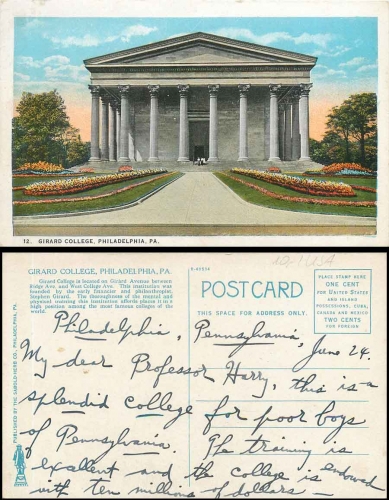 12. GIRARD COLLEGE, PHILADELPHIA, PA.
GIRARD COLLEGE, PHILADELPHIA, PA.
Girard College is located on Girard Avenue between
Ridge Ave. and West College Ave. This institution was
founded by the early financier and philanthropist,
Stephen Girard. The thoroughness of the mental and
physical training this institution affords places it in a
high position among the most famous colleges of the
world.
POSTCARD
THIS SPACE FOR ADDRESS ONLY.
PLACE STAMP HERE
ONE CENT
FOR UNITED STATES
AND ISLAND
POSSESSIONS, CUBA,
CANADA AND MEXICO
TWO CENTS
FOR FOREIGN
PUBLISHED BY THE SABOLD-HERB CO., PHILADELPHIA, PA.
Philadelphia, Pennsylvania, June 24.
My dear Professor Harry, this is a
splendid college for poor boys
of Pennsylvania. The training is
exsellent and the college is endowed
with ten millions of dollars